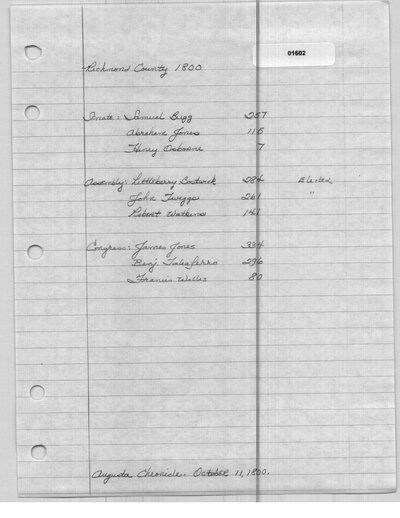 01602
Richmond County 1800
Senate: Samuel Bugg 257
Abraham Jones 115
Henry Osborne 7
Assembly: Littleberry Bostwick 284 Elected
John Twiggs 261 "
Robert Watkins 141
Congress: James Jones 334
Benj. Taliaferro 296
Francis Willis 80
Augusta Chronicle. October 11, 1800.